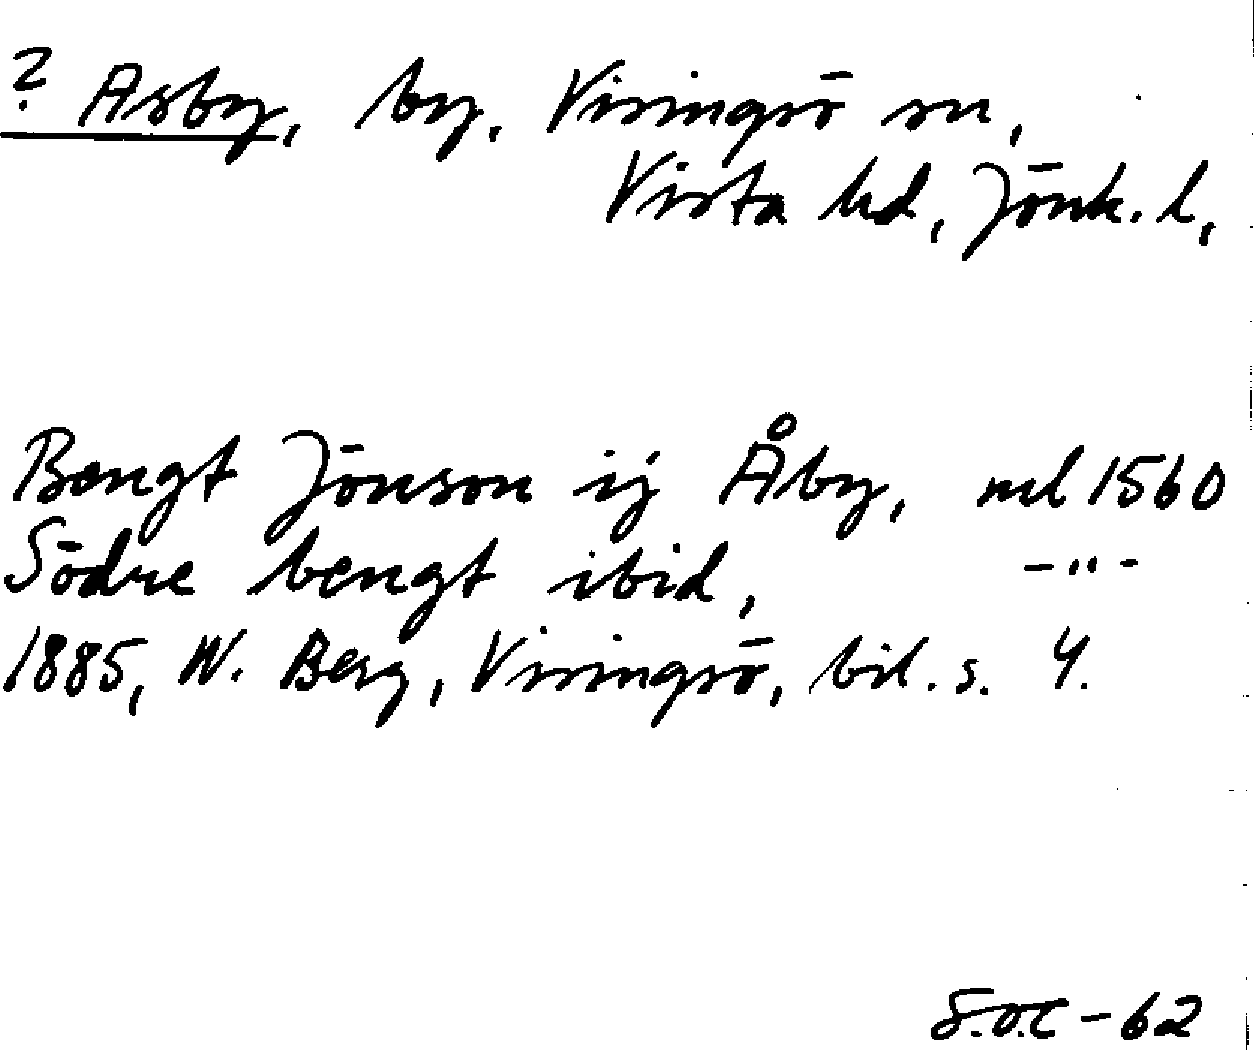 ? Asby, by, Visingsö sn,
Vista hd, Jönk. l,
Bengt Jönson ij Åby, ml 1560
Södre bengt ibid, -"-
1885, W. Berg, Visingsö, bil. s. 4.
S.O.C - 62